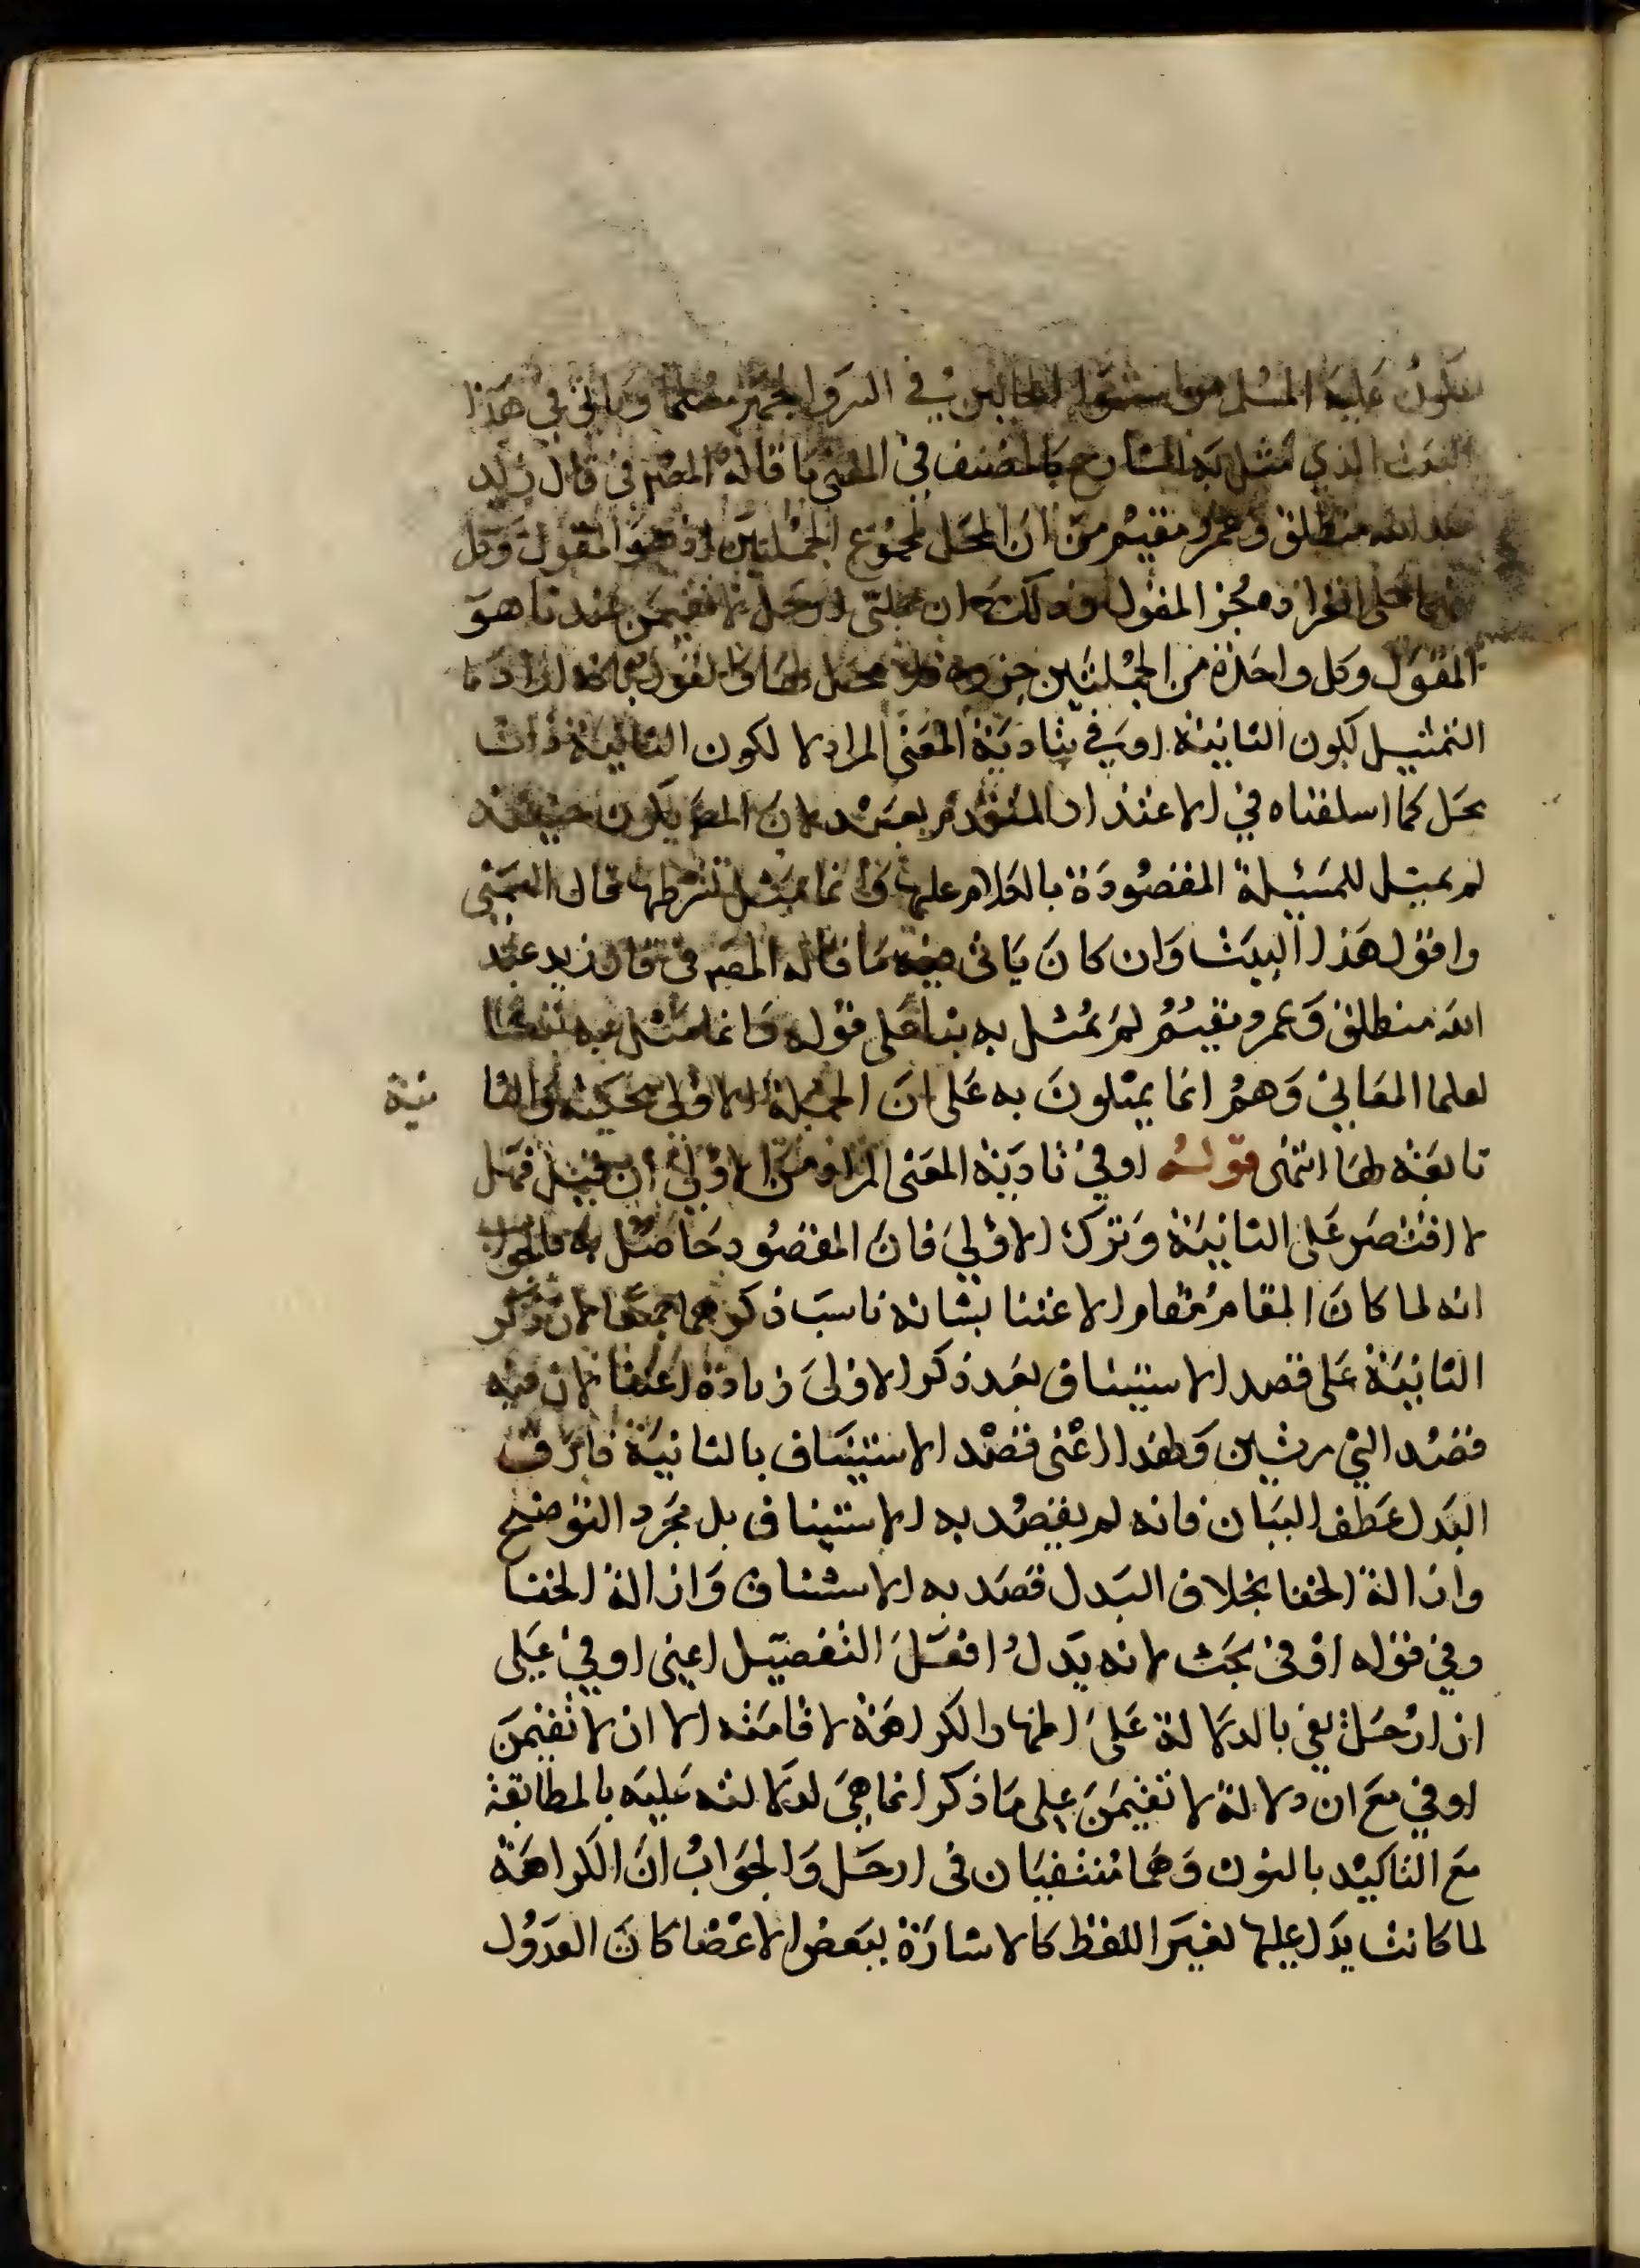 يكون عليه المسلم من استواء الحالين في السر والجهر مسلما وياتي في هذا
البيت الذي مثل به الشارح كالمصنف في المغني ما قاله المص في قال زيد
عبد الله منطلق وعمرو مقيم من ان المحل لمجموع الجملتين اذ هو المقول وكل
منهما على انفراده جزء المقول وذلك ان جملتي ارحل لا تقيمن عندنا هو
المقول وكل واحدة من الجملتين جزوه فلا محل لها والقول بانه اراد
التمثيل لكون الثانية اوفي بتادية المعنى المراد لا لكون الثانية ذات
محل كما اسلفناه في الاعتذار المتقدم بعيد لان المص يكون حينئذ
لم يمثل للمسئلة المقصودة بالكلام عليها وانما مثل لشرطها قال الشمني
واقول هذا البيت وان كان ياتي فيه ما قاله المص في قال زيد عبد
الله منطلق وعمرو مقيم لم يمثل به بنا على قوله وانما مثل به تبعا
لعلما المعاني وهم انما يمثلون به على ان الجملة الاولى محكية والثا نية
تابعة لها انتهى قوله اوفي بتادية المعنى المراد من الاولى ان قيل فهل
لا اقتصر على الثانية وترك الاولي فان المقصود حاصل به فالجواب
انه لما كان المقام مقام الاعتنا بشانه ناسب ذكرهما جميعا لان ذكر
الثانية على قصد الاستيناف بعد ذكر الاولى زيادة اعتنا لان فيه
قصد الشي مرتين وبهذا اعني قصد الاستيناف بالثانية فارق
البدل عطف البيان فانه لم يقصد به الاستيناف بل مجرد التوضيح
وازالة الخفا بخلاف البدل قصد به الاستناف وازالة الخفا
وفي قوله اوفي بحث لانه يدل افعل التفضيل اعني اوفي على
ان ارحل يفي بالدلالة على اظهار الكراهة لاقامته الا ان لا تقيمن
اوفي مع ان دلالة لا تقيمن على ما ذكر انما هي لدلالته عليه بالمطابقة
مع التاكيد بالنون وهما منتفيان في ارحل والجواب ان الكراهة
لما كانت يدل عليها لغير اللفظ كالاشارة ببعض الاعضا كان العدول